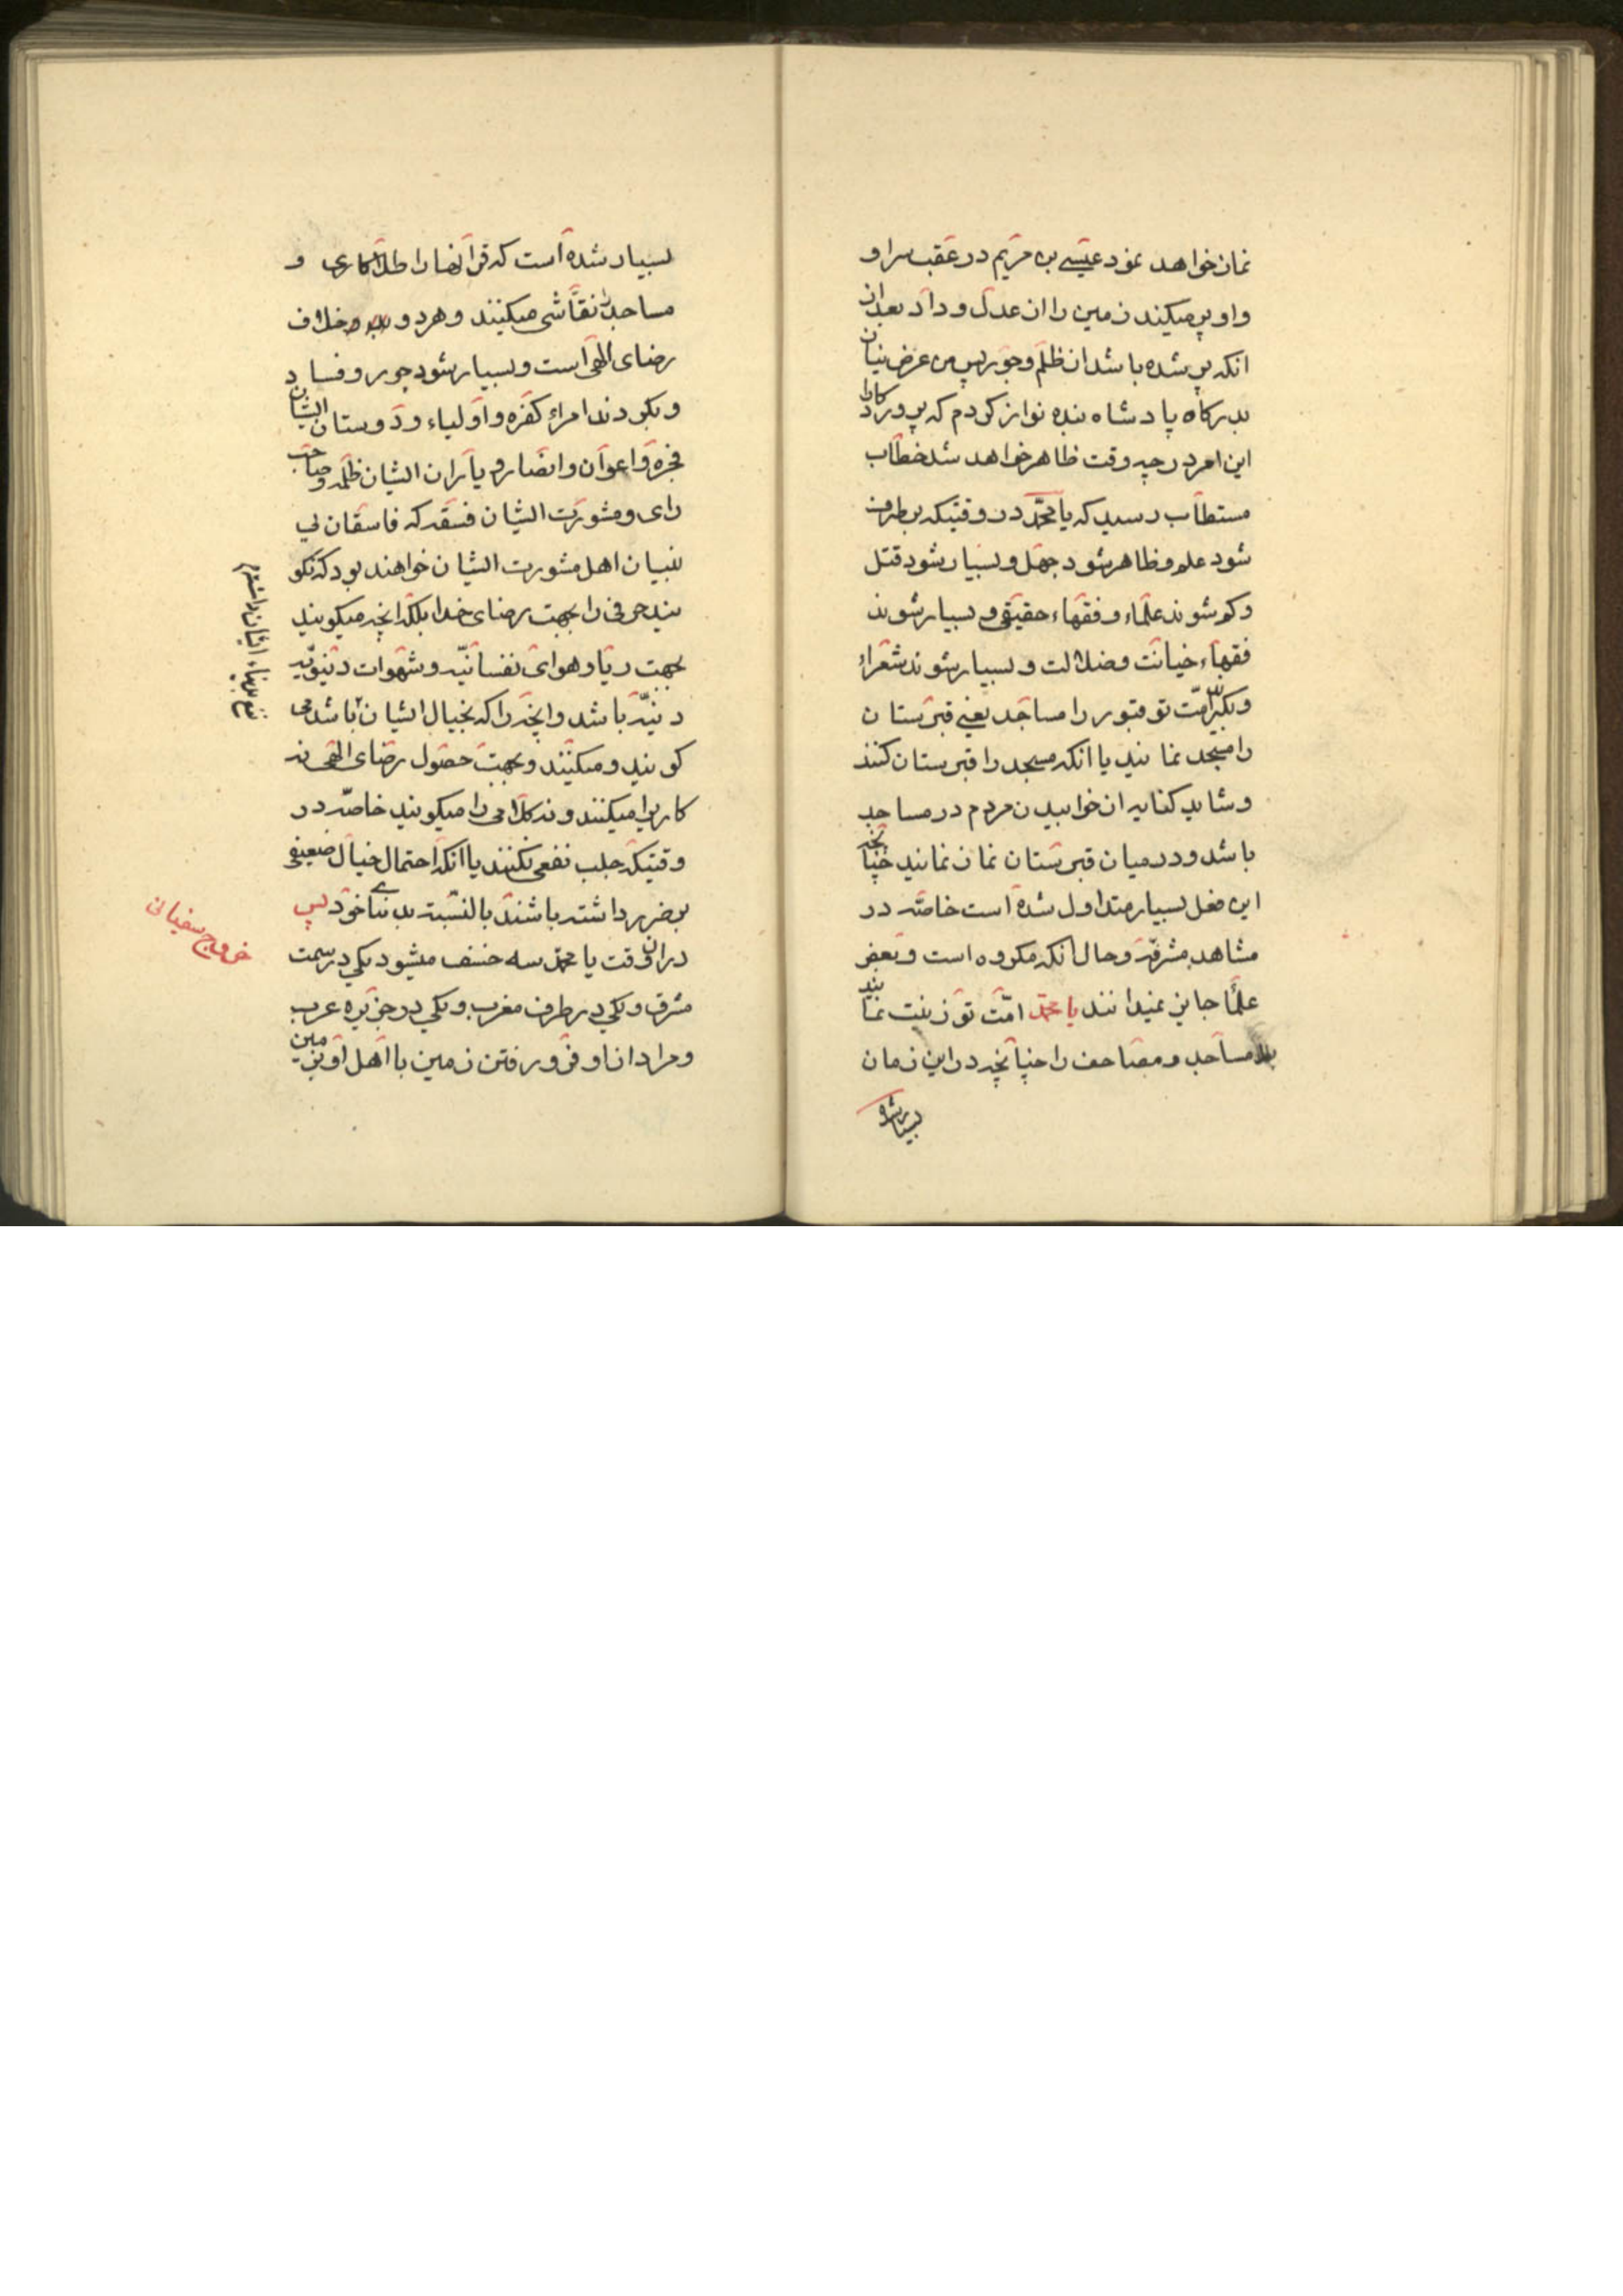 نماز خواهد نمود عیسی بن مریم در عقب سر او
و او پر میکند زمین را از عدل و داد بعد از
انکه پر شده باشد از ظلم و جور پس من عرض نیاز
بدرکاه پادشاه بنده نواز کردم که پروردکارا
این امر در چه وقت ظاهر خواهد شد خطاب
مستطاب رسید که یا محمد در وقتیکه بر طرف
شود علم و ظاهر شود جهل و بسیار شود قتل
و کم شوند علماء و فقهاء حقیقی و بسیار شوند
فقهاء خیانت و ضلالت و بسیار شوند شعراء
و بکیرند امت تو قبور را مساجد یعنی قبرستان
را مسجد نمایند یا انکه مسجد را قبرستان کنند
و شاید کنایه از خوابیدن مردم در مساجد
باشد و در میان قبرستان نماز نمایند چنانچه
این فعل بسیار متداول شده است خاصه در
مشاهد مشرفه و حال انکه مکروه است و بعضی
علما جایز نمیدانند یا محمد امت تو زینت نمایند
مساجد و مصاحف را چنانچه در این زمان
بسیار شده
بسیار شده است که قرانها را طلاکاری و
مساجد را نقاشی میکنند و هر دو خلاف
رضای الهی است و بسیار شود جور و فساد
و بکردند امراء کفره و اولیاء و دوستان ایشان
فجره و اعوان و انصار و یاران ایشان ظلمه و صاحب
رای و مشورت ایشان فسقه که فاسقان بی
بنیان اهل مشورت ایشان خواهند بود که نکو
یند حرفی را بجهت رضای خدا بلکه انچه میکویند
بجهت ریا و هوای نفسانیه و شهوات دنیویه
دنیه باشد و انچه را که بخیال ایشان باشد می
کویند و میکنند و بجهت حصول رضای الهی نه
کاریرا میکنند و نه کلامی را میکویند خاصه در
وقتیکه جلب نفعی نکنند یا انکه احتمال خیال ضعیفی
بر ضرر داشته باشند بالنسبة بدنیای خود پس
در ان وقت یا محمد سه خسف میشود یکی در سمت
مشرق و یکی در طرف مغرب و یکی در جزیره عرب
و مراد از او فرو رفتن زمین با اهل او بزمین
خروج سفیانی